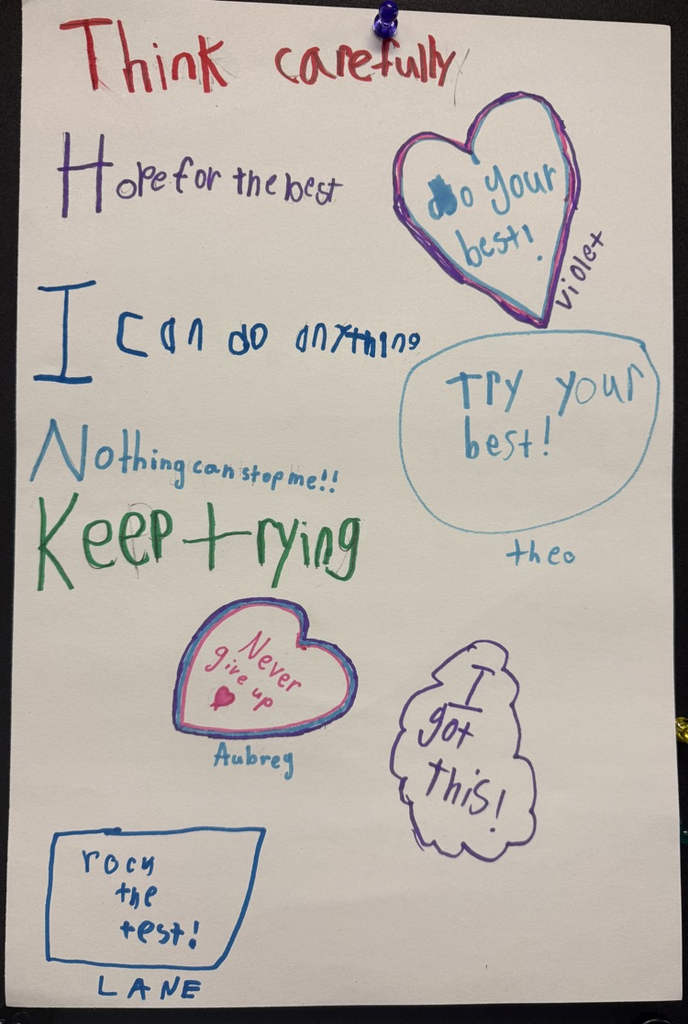 Think carefully
Hope for the best
do your
best!
violet
I can do anything
Try your
best!
theo
Nothing can stop me!!
Keep trying
Never
give up
Aubrey
I
got
this!
rock
the
test!
LANE